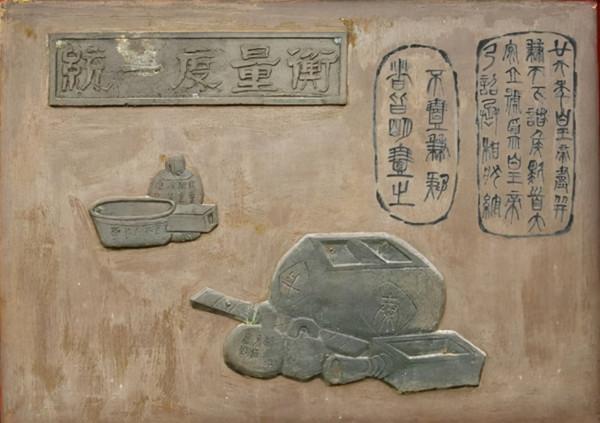 統一度量衡
廿六年皇帝盡并
兼天下諸侯黔首大
安立號為皇帝
乃詔丞相狀綰
不壹歉疑
者皆明壹之
秦